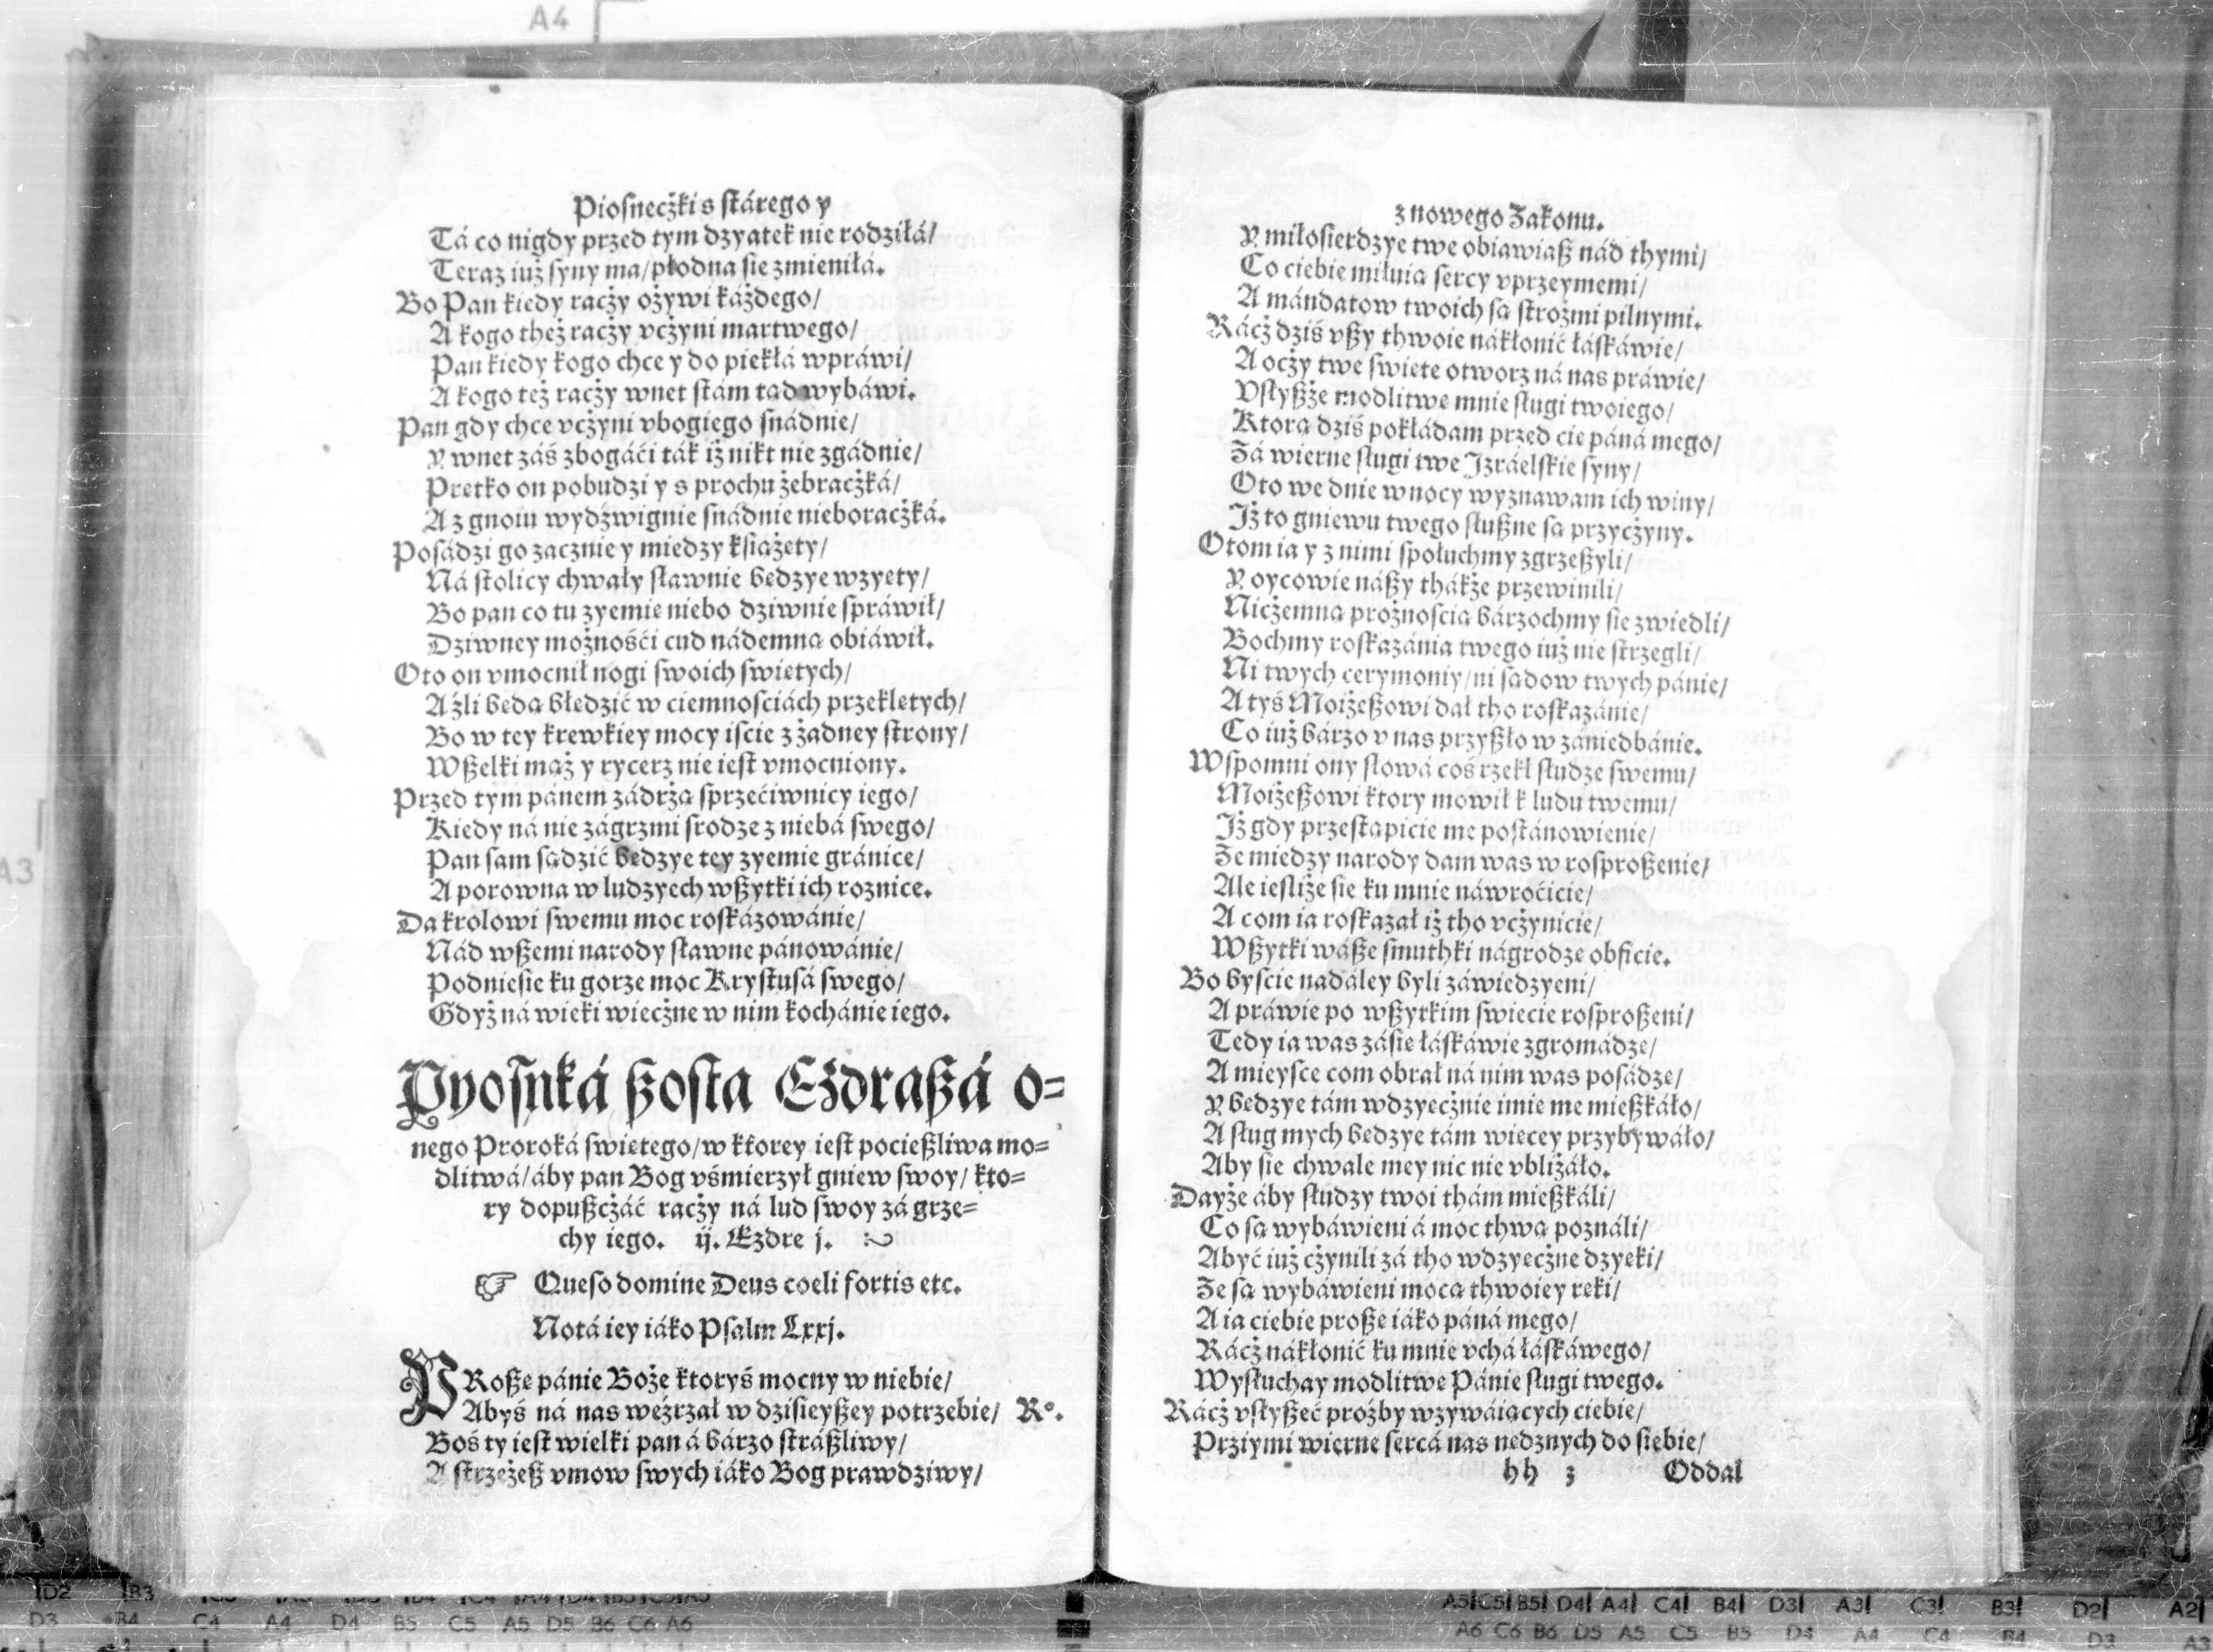 Piosnecżki s stárego y
Tá co nigdy przed tym dzyatek nie rodziłá/
Teraz iuż syny ma/płodna sie zmieniłá.
Bo Pan kiedy racży ożywi káżdego/
A kogo theż racży vcżyni martwego/
Pan kiedy kogo chce y do piekłá wpráwi/
A kogo też racży wnet stám tąd wybáwi.
Pan gdy chce vcżyni vbogiego snádnie/
Y wnet záś zbogáći ták iż nikt nie zgádnie/
Prętko on pobudzi y s prochu żebracżká/
A z gnoiu wydźwignie snádnie nieboracżká.
Posádzi go zacznie y miedzy ksiażęty/
Ná stolicy chwały sławnie będzye wzyęty/
Bo pan co tu zyemię niebo dziwnie spráwił/
Dziwney możnośći cud nádemną obiáwił.
Oto on vmocnił nogi swoich swiętych/
A źli będą błędzić w ciemnosciách przeklętych/
Bo w tey krewkiey mocy iście z żadney strony/
Wßelki mąż y rycerz nie iest vmocniony.
Przed tym pánem zádrżą sprzećiwnicy iego/
Kiedy ná nie zágrzmi srodze z niebá swego/
Pan sam sądzić będzye tey zyemie gránice/
A porowna w ludzyech wßytki ich roznice.
Da krolowi swemu moc roskázowánie/
Nád wßemi narody sławne pánowánie/
Podniesie ku gorze moc Krystusá swego/
Gdyż ná wieki wiecżne w nim kochánie iego.
Pyosnká ßosta Eżdraßá o=
nego Proroká swiętego/w ktorey iest pocießliwa mo=
dlitwá/áby pan Bog vśmierzył gniew swoy/ kto=
ry dopußcżáć racży ná lud swoy zá grze=
chy iego. ij. Ezdre j.
☞ Queso domine Deus coeli fortis etc.
Notá iey iáko Psalm Lxxj.
PRoßę pánie Boże ktoryś mocny w niebie/
Abyś ná nas weźrzał w dzisieyßey potrzebie/ R°.
Boś ty iest wielki pan á bárzo stráßliwy/
A strzeżeß vmow swych iáko Bog prawdziwy/
z nowego Zakonu.
Y miłosierdzye twe obiawiaß nád thymi/
Co ciebie miłuią sercy vprzeymemi/
A mándatow twoich są strożmi pilnymi.
Rácż dziś vßy thwoie nákłonić łáskáwie/
A ocży twe swięte otworz ná nas práwie/
Vsłyßże modlitwę mnie sługi twoiego/
Ktorą dziś pokłádam przed cię páná mego/
Zá wierne sługi twe Izráelskie syny/
Oto we dnie w nocy wyznawam ich winy/
Iż to gniewu twego słußne są przycżyny.
Otom ia y z nimi społuchmy zgrzeßyli/
Y oycowie náßy thákże przewinili/
Nicżemną prożnoscią bárzochmy się zwiedli/
Bochmy roskazánia twego iuż nie strzegli/
Ni twych cerymoniy/ni sądow twych pánie/
A tyś Moiżeßowi dał tho roskazánie/
Co iuż bárzo v nas przyßło w zániedbánie.
Wspomni ony słowá coś rzekł słudze swemu/
Moiżeßowi ktory mowił k ludu twemu/
Iż gdy przestąpicie me postánowienie/
Ze miedzy narody dam was w rosproßenie/
Ale iestliże sie ku mnie náwroćicie/
A com ia roskazał iż tho vcżynicie/
Wßytki wáße smuthki nágrodzę obficie.
Bo byscie nadáley byli záwiedzyeni/
A práwie po wßytkim swiecie rosproßeni/
Tedy ia was zásię łáskáwie zgromádzę/
A mieysce com obrał ná nim was posádzę/
Y będzye tám wdzyecżnie imię me mießkáło/
A sług mych będzye tám więcey przybywáło/
Aby się chwale mey nic nie vbliżáło.
Dayże áby słudzy twoi thám mießkáli/
Co są wybáwieni á moc thwą poználi/
Abyć iuż cżynili zá tho wdzyęcżne dzyęki/
Ze są wybáwieni mocą thwoiey ręki/
A ia ciebie proßę iáko páná mego/
Rácż nákłonić ku mnie vchá łáskáwego/
Wysłuchay modlitwę Pánie sługi twego.
Rácż vsłyßeć proźby wzywáiących ciebie/
Prziymi wierne sercá nas nędznych do siebie/
hh 3 Oddal